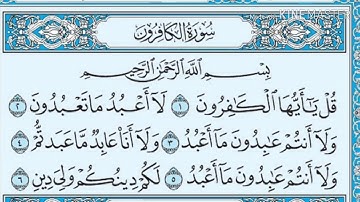 KINEMASTER
سُورَةُ الكَافِرُونَ
بِسْمِ اللَّهِ الرَّحْمَٰنِ الرَّحِيمِ
قُلْ يَا أَيُّهَا الْكَافِرُونَ ١ لَا أَعْبُدُ مَا تَعْبُدُونَ ٢
وَلَا أَنتُمْ عَابِدُونَ مَا أَعْبُدُ ٣ وَلَا أَنَا عَابِدٌ مَّا عَبَدتُّمْ ٤
وَلَا أَنتُمْ عَابِدُونَ مَا أَعْبُدُ ٥ لَكُمْ دِينُكُمْ وَلِيَ دِينِ ٦